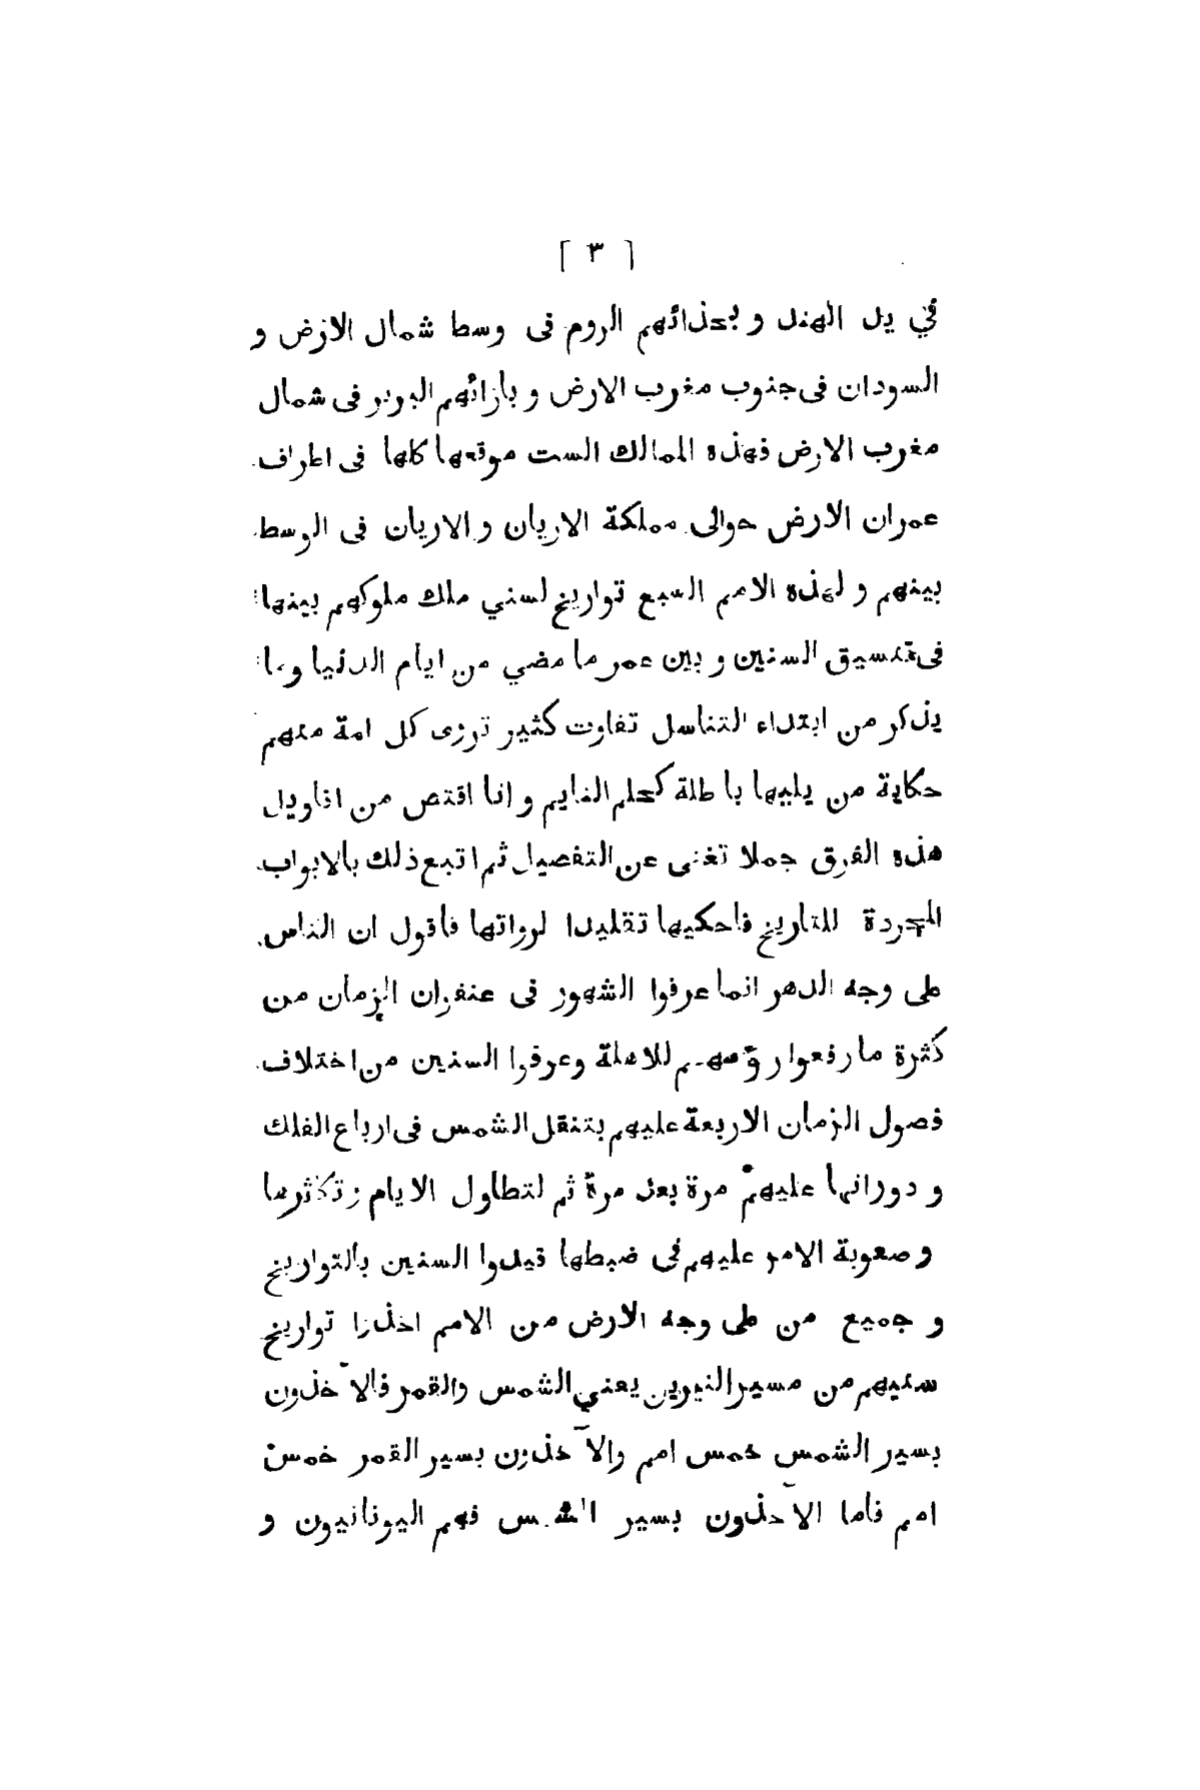 [ ٣ ]
في يد الهند و بحذائهم الروم فى وسط شمال الارض و
السودان فى جنوب مغرب الارض و بازائهم البربر فى شمال
مغرب الارض فهذه الممالك الست موقعها كلها فى اطراف
عمران الارض حوالى مملكة الاريان و الاريان فى الوسط
بينهم و لهذه الامم السبع تواريخ لسني ملك ملوكهم بينها
فى تنسيق السنين و بين عمر ما مضي من ايام الدنيا وما
يذكر من ابتداء التناسل تفاوت كثير ترى كل امة منهم
حكاية من يليها باطلة كحلم النايم و انا اقتص من اقاويل
هذه الفرق جملا تغنى عن التفصيل ثم اتبع ذلك بالابواب
المجردة للتاريخ فاحكيها تقليدا لرواتها فاقول ان الناس
على وجه الدهر انما عرفوا الشهور فى عنفران الزمان من
كثرة ما رفعوا رؤسهم للاهلة وعرفوا السنين من اختلاف
فصول الزمان الاربعة عليهم بتنقل الشمس فى ارباع الفلك
و دورانها عليهم مرة بعد مرة ثم لتطاول الايام و تكاثرها
و صعوبة الامر عليهم فى ضبطها قيدوا السنين بالتواريخ
و جميع من على وجه الارض من الامم اخذوا تواريخ
سنيهم من مسير النيرين يعني الشمس والقمر فالآخذون
بسير الشمس خمس امم والآخذون بسير القمر خمس
امم فاما الآخذون بسير الشمس فهم اليونانيون و